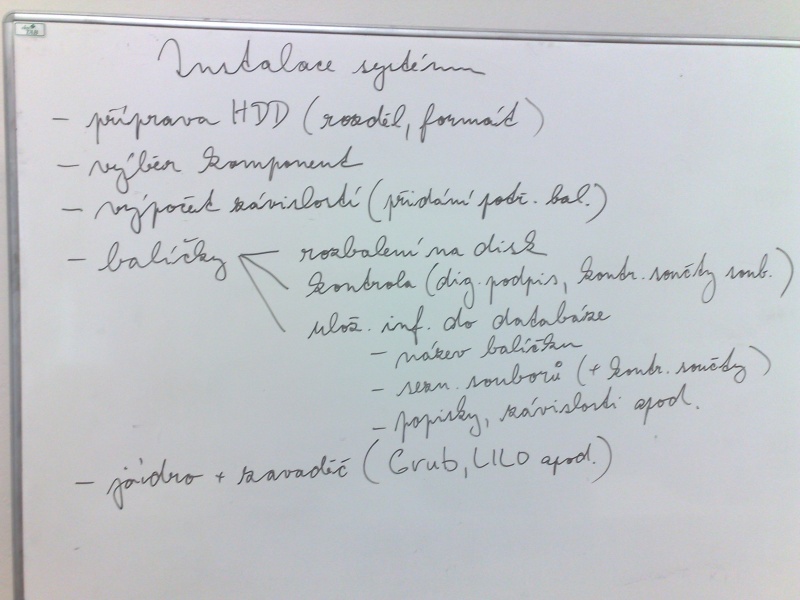 Instalace systému
- příprava HDD (rozděl, formát)
- výběr komponent
- výpočet závislostí (přidání potř. bal.)
- balíčky
rozbalení na disk
kontrola (dig. podpis, kontr. součty soub.)
ulož. inf. do databáze
- název balíčku
- sezn. souborů (+ kontr. součty)
- popisky, závislosti apod.
- jádro + zavaděč (Grub, LILO apod.)